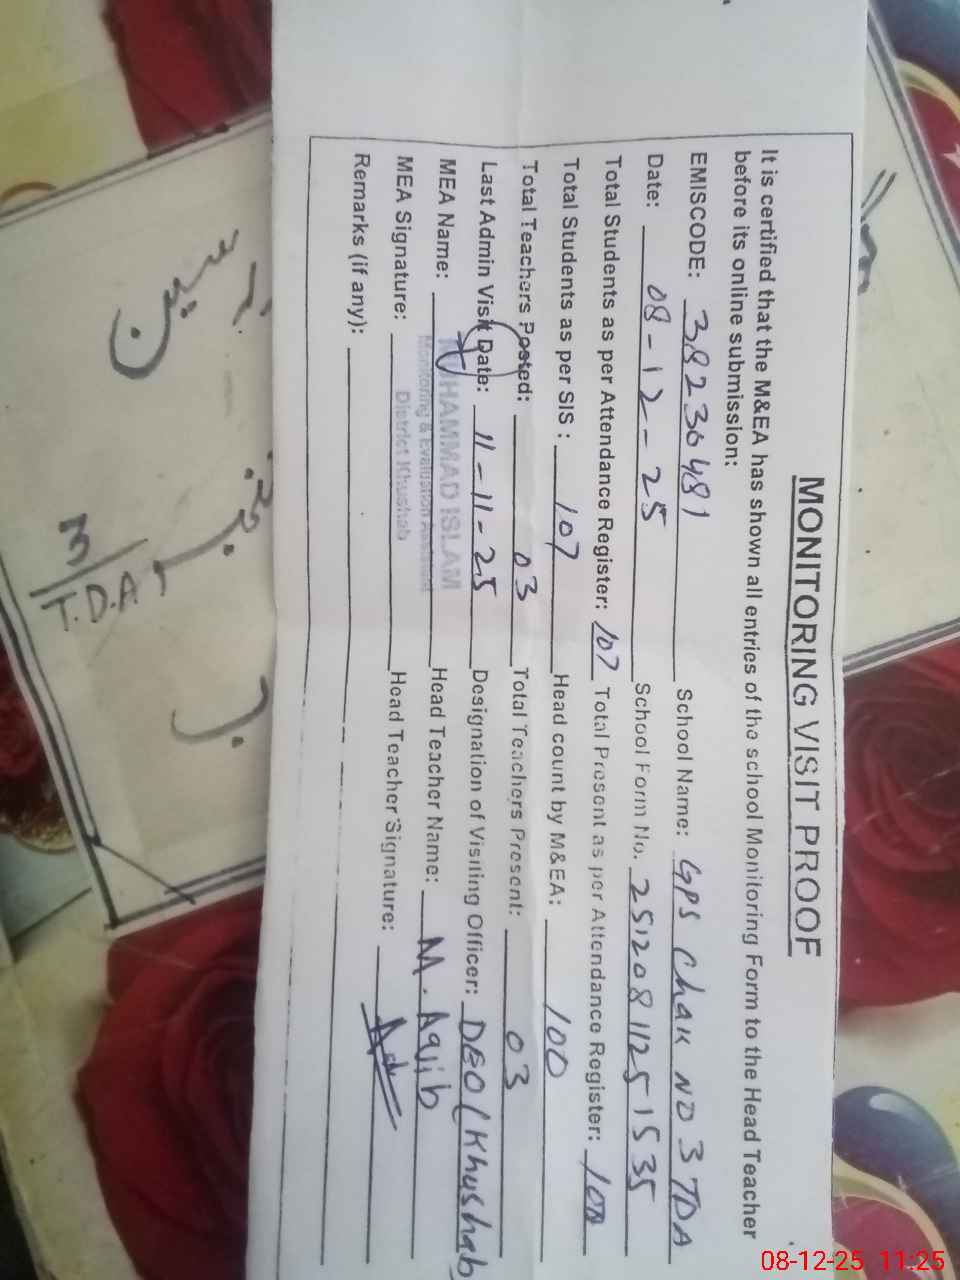 MONITORING VISIT PROOF
It is certified that the M&EA has shown all entries of the school Monitoring Form to the Head Teacher
before its online submission:
EMISCODE: 38230481 School Name: GPS Chak NO 3 TDA
Date: 08-12-25 School Form No. 25120811251535
Total Students as per Attendance Register: 107 Total Present as per Attendance Register: 100
Total Students as per SIS: 107 Head count by M&EA: 100
Total Teachers Posted: 03 Total Teachers Present: 03
Last Admin Visit Date: 11-11-25 Designation of Visiting Officer: DEO (Khushab)
MEA Name: MUHAMMAD ISLAM Head Teacher Name: M. Aqib
Monitoring & Evaluation Assistant
MEA Signature: District Khushab Head Teacher Signature:
Remarks (if any):
3
T.D.A
08-12-25 11:25